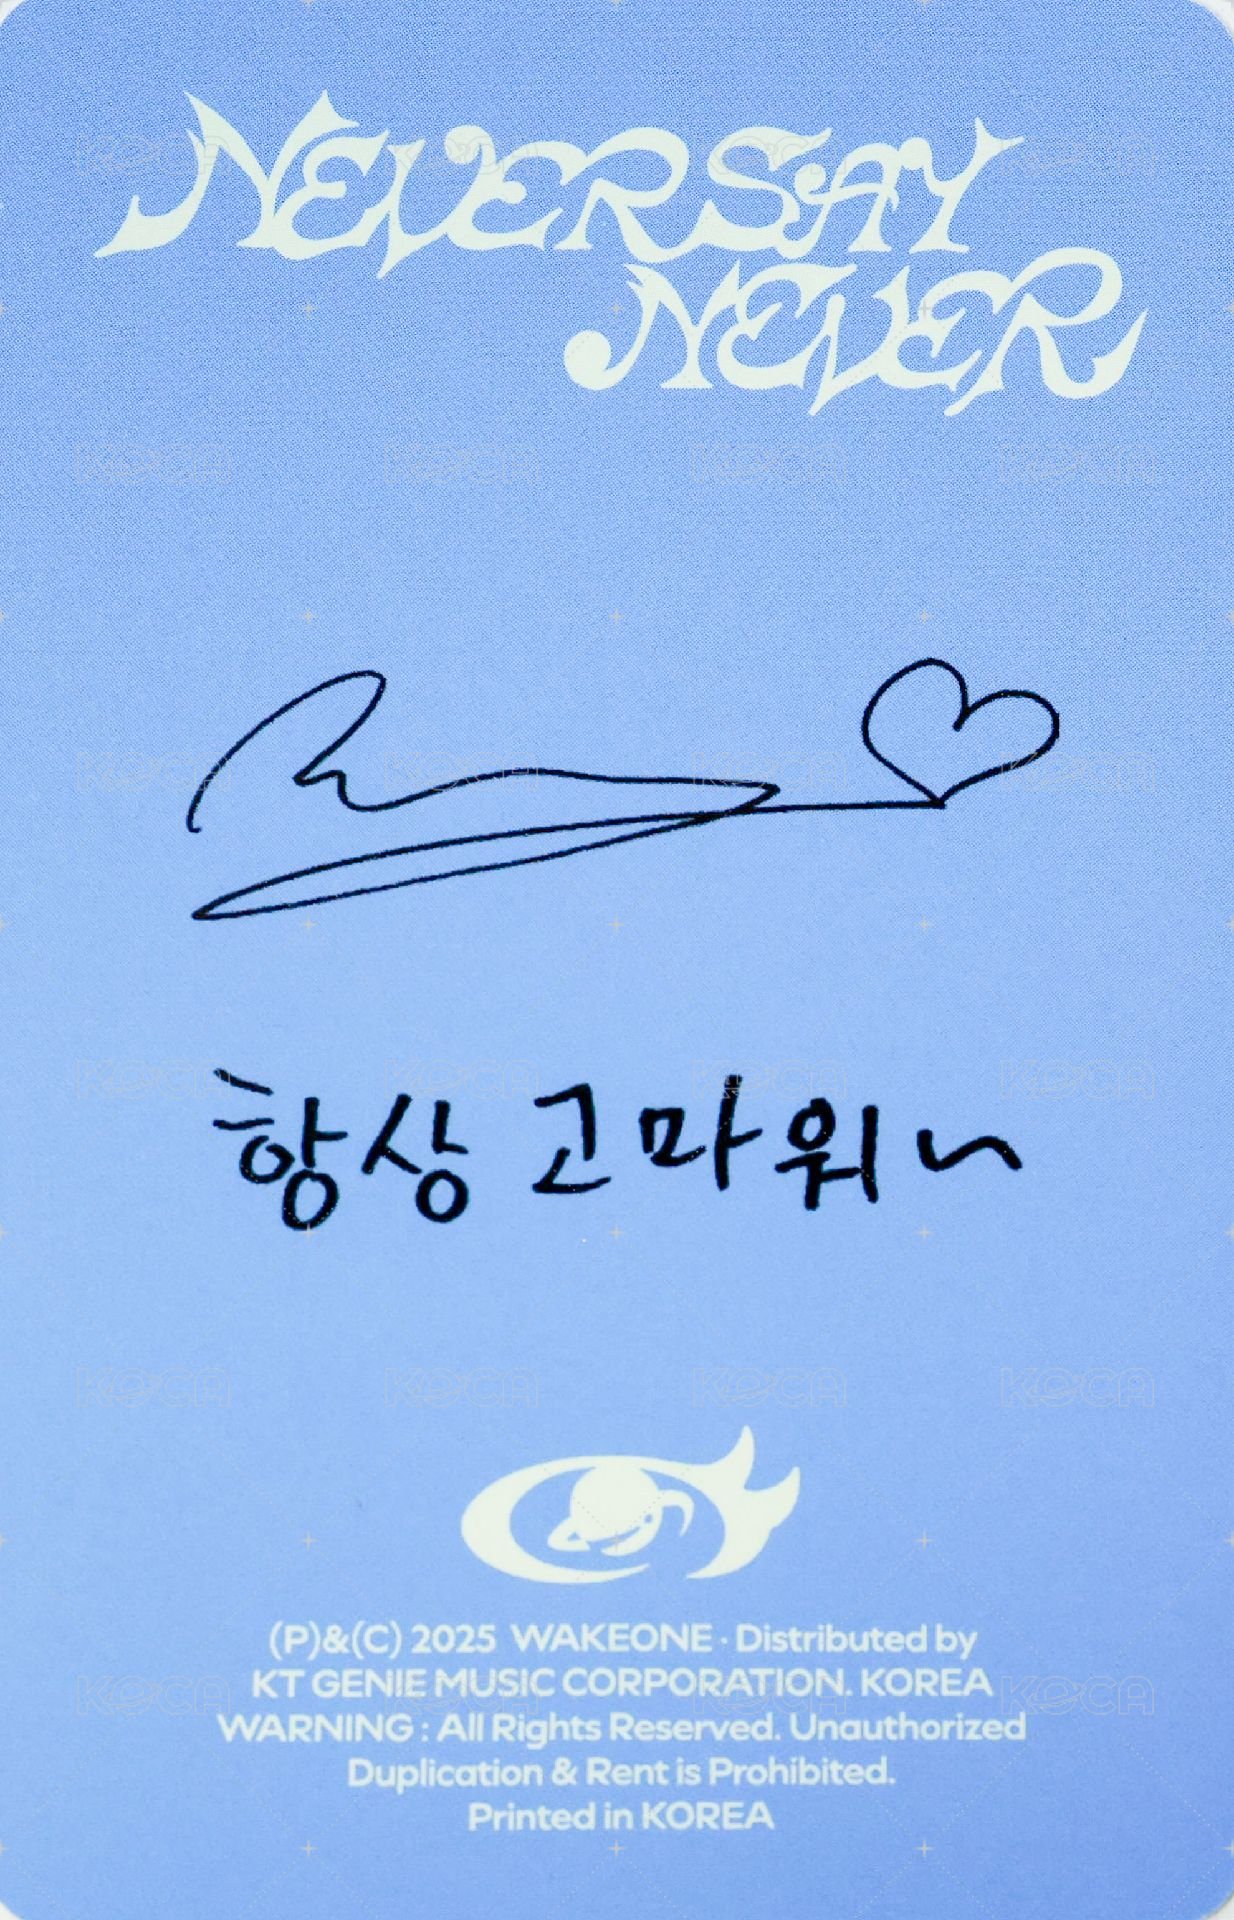 NEVER SAY
NEVER
항상 고마워~
(P)&(C) 2025 WAKEONE · Distributed by
KT GENIE MUSIC CORPORATION. KOREA
WARNING : All Rights Reserved. Unauthorized
Duplication & Rent is Prohibited.
Printed in KOREA
KOCA